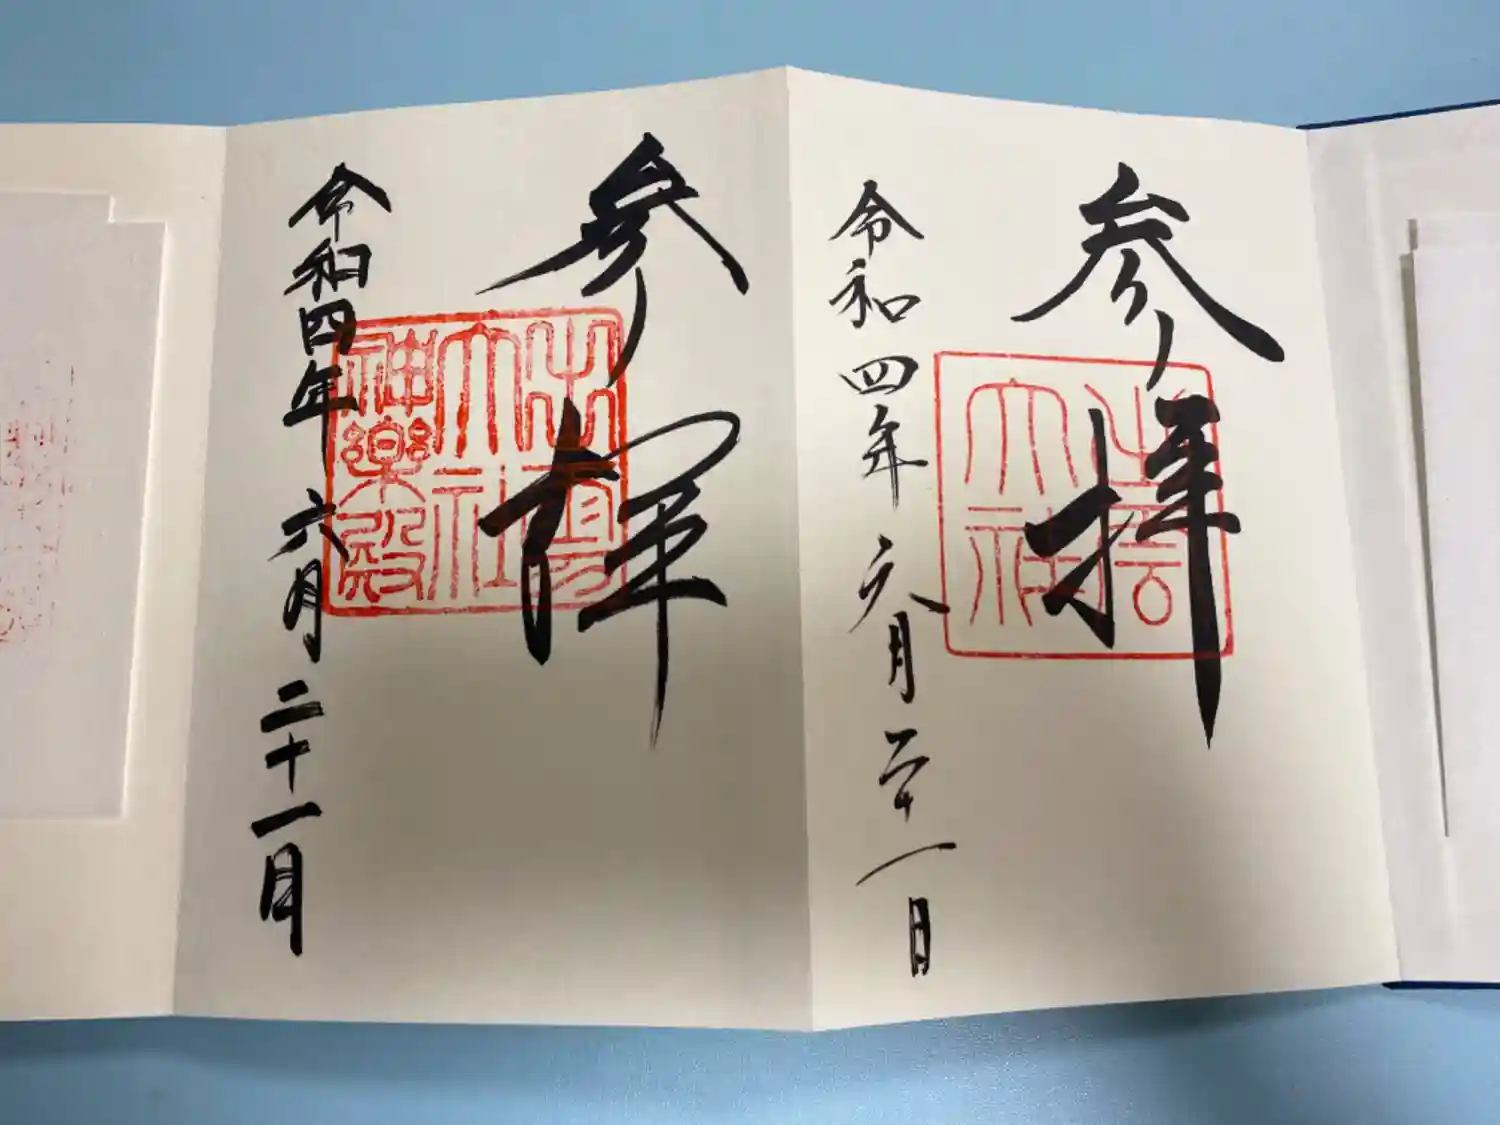 参拝
出雲
大社
令和四年六月二十一日
参拝
出雲
大社
神楽殿
令和四年六月二十一日